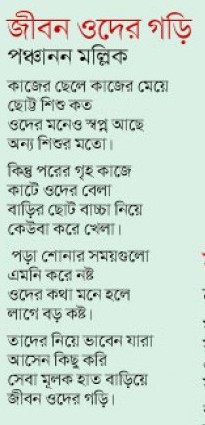 জীবন ওদের গড়ি
পঞ্চানন মল্লিক
কাজের ছেলে কাজের মেয়ে
ছোট্ট শিশু কত
ওদের মনেও স্বপ্ন আছে
অন্য শিশুর মতো।
কিন্তু পরের গৃহ কাজে
কাটে ওদের বেলা
বাড়ির ছোট বাচ্চা নিয়ে
কেউবা করে খেলা।
পড়া শোনার সময়গুলো
এমনি করে নষ্ট
ওদের কথা মনে হলে
লাগে বড় কষ্ট।
তাদের নিয়ে ভাবেন যারা
আসেন কিছু করি
সেবা মূলক হাত বাড়িয়ে
জীবন ওদের গড়ি।